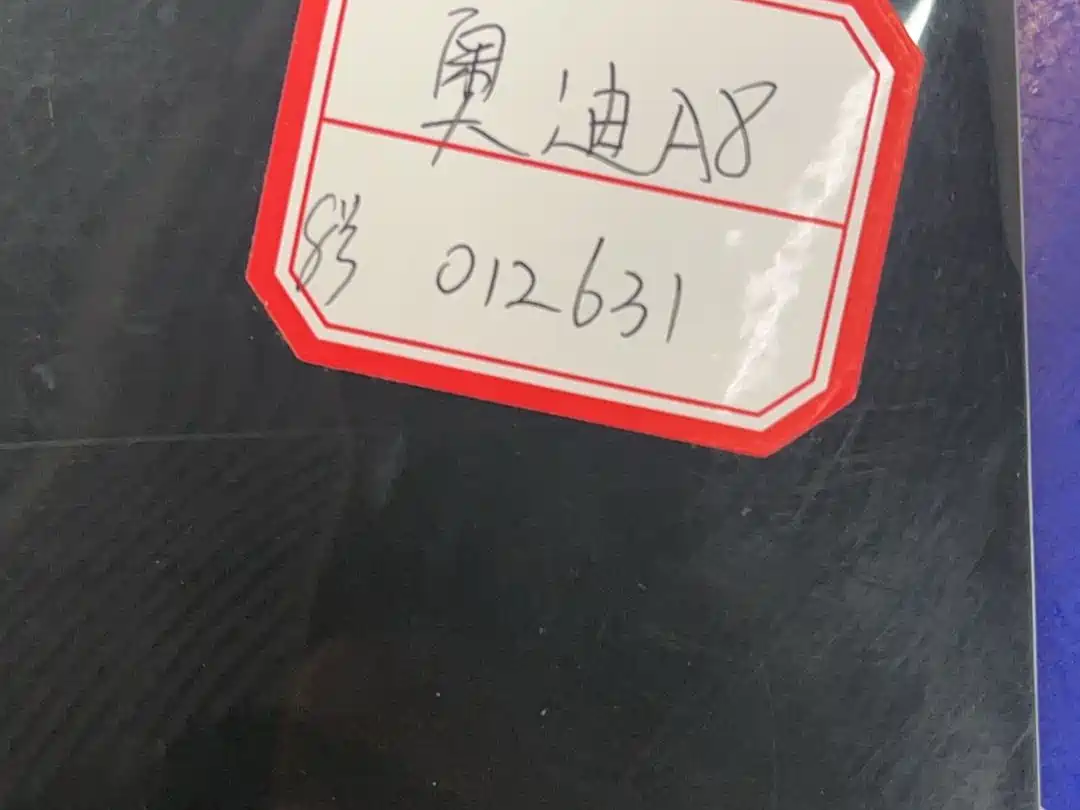 奥迪A8
012631